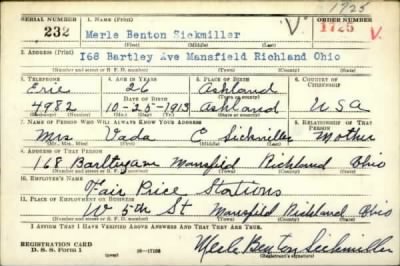 1725
SERIAL NUMBER 1. NAME (Print) ORDER NUMBER
232 Merle Benton Sickmiller V 1725 V.
(First) (Middle) (Last)
2. ADDRESS (Print)
168 Bartley Ave Mansfield Richland Ohio
(Number and street or R. F. D. number) (Town) (County) (State)
3. TELEPHONE 4. AGE IN YEARS 5. PLACE OF BIRTH 6. COUNTRY OF CITIZENSHIP
Erie 26 Ashland
DATE OF BIRTH
4982 10-25-1913 Ashland U S A
(Exchange) (Number) (Mo.) (Day) (Yr.) (State or country)
7. NAME OF PERSON WHO WILL ALWAYS KNOW YOUR ADDRESS 8. RELATIONSHIP OF THAT PERSON
Mrs Vada C Sickmiller Mother
(Mr., Mrs., Miss) (First) (Middle) (Last)
9. ADDRESS OF THAT PERSON
168 Bartley ave Mansfield Richland Ohio
(Number and street or R. F. D. number) (Town) (County) (State)
10. EMPLOYER'S NAME
Fair Price Stations
11. PLACE OF EMPLOYMENT OR BUSINESS
W 5th St Mansfield Richland Ohio
(Number and street or R. F. D. number) (Town) (County) (State)
I AFFIRM THAT I HAVE VERIFIED ABOVE ANSWERS AND THAT THEY ARE TRUE.
REGISTRATION CARD
D. S. S. Form 1 16-17105 Merle Benton Sickmiller
(Registrant's signature)